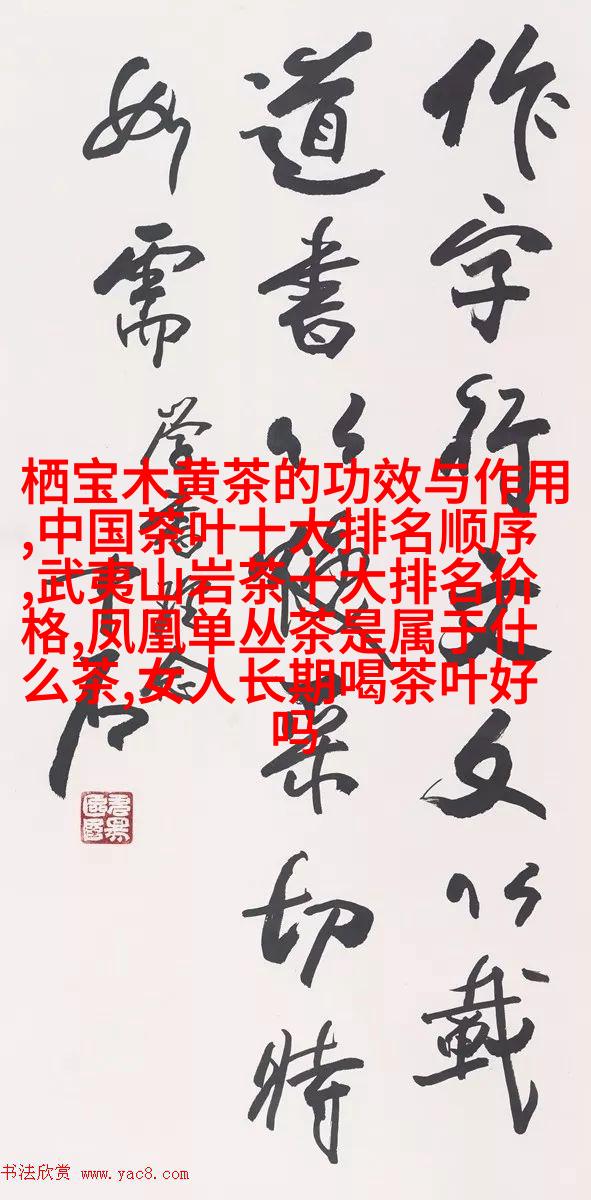 作字行文文以載
道書以切時
如需
学書
栖宝木黄茶的功效与作用
,中国茶叶十大排名顺序
,武夷山岩茶十大排名价
格,凤凰单丛茶是属于什
么茶,女人长期喝茶叶好
吗
书法欣赏 www.yac8.com